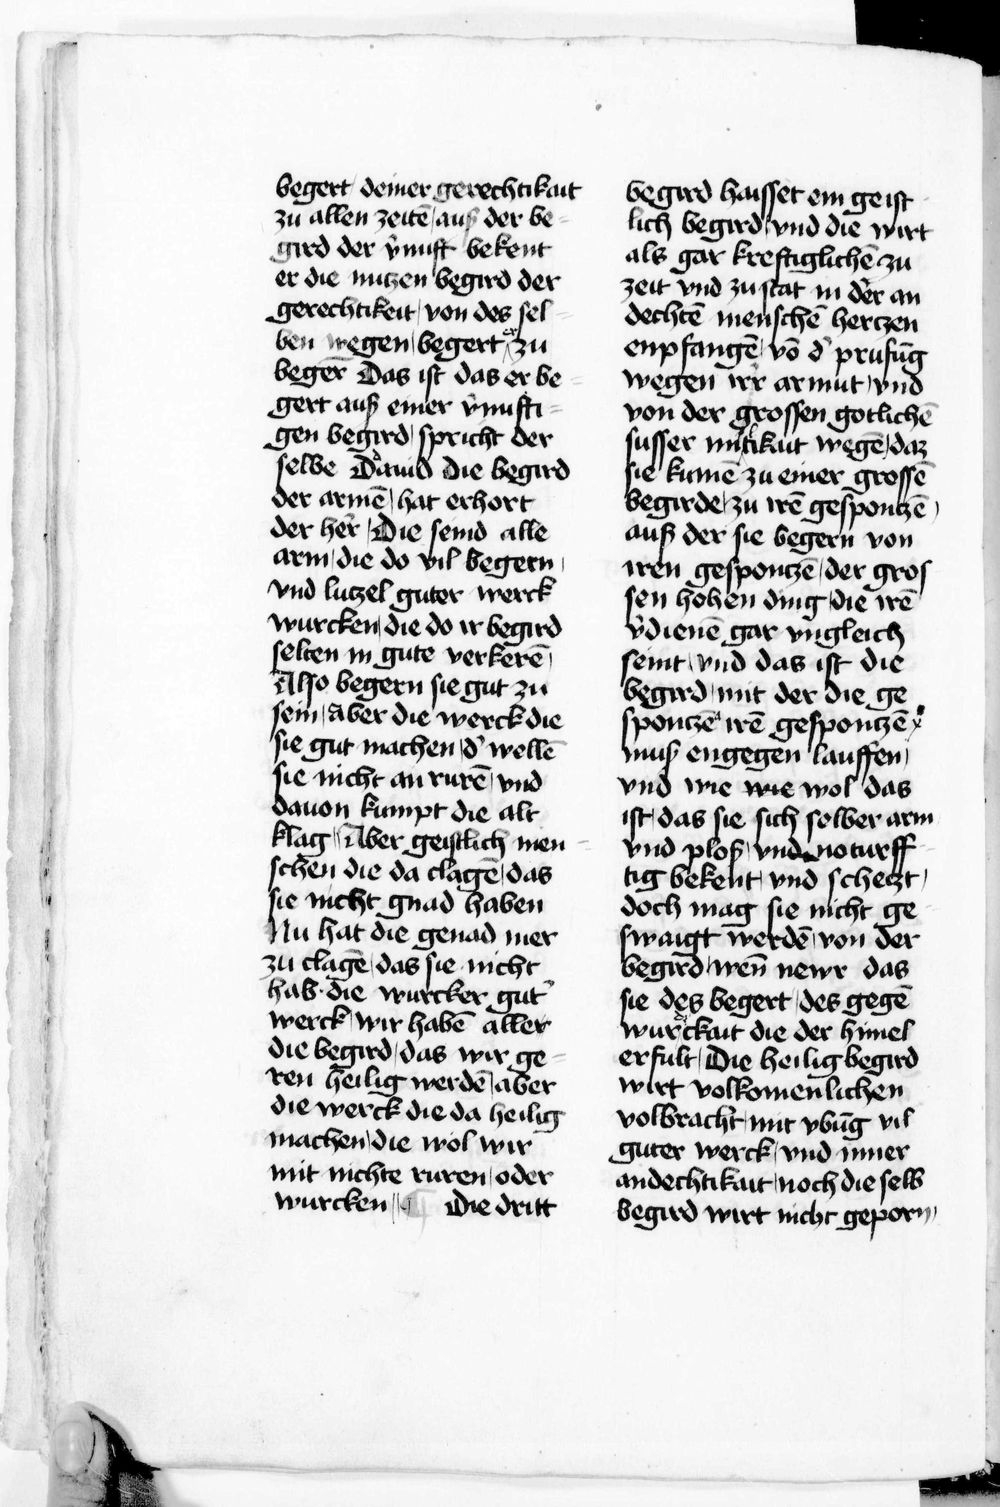 begert / deiner gerechtikait
zu allen zeitē / auß der be=
gird der v̉nuft bekent
er die nutzen begird der
gerechtikeit / von des sel=
ben wegen / begert er zu
begerr̄ Das ist das er be=
gert auß einer v̉nufti=
gen begird / spricht der
selbe Dauid Die begird
der armē / hat erhort
der her̉ / Die seind alle
arm / die do vil begern /
vnd lutzel guter werck
wurcken / die do ir begird
selten in gute verkerē /
Also begern sie gut zu
sein / Aber die werck die
sie gut machen / d̉ wellē
sie nicht an rurē / vnd
dauon kumpt die alt
klag / Aber geistlich men=
schen die da clagē / das
sie nicht gnad haben
Nu hat die genad mer
zu clagē / das sie nicht
hab · die wurcker gut̉
werck / wir habē aller
die begird / das wir ge=
ren heilig werdē / aber
die werck die da heilig
machen / die wol wir
mit nichte ruren / oder
wurcken / ¶ Die dritt
begird haisset ein geist=
lich begird / vnd die wirt
als gar kreftiglichē zu
zeit vnd zu stat in der an
dechtē menschē hertzen
enpfangē / vō d̉ prufūg
wegen ir̉r armut / vnd
von der grossen gotlichē
susser miltikait wegē / daz
sie kumē zu einer grossē
begirde / zu irē gesponczē /
auß der sie begern von
iren gesponczē / der gros
sen hohen ding / die irē
v̉dienē gar vngleich
seint / vnd das ist die
begird / mit der die ge
sponczē irē gesponczē
muß engegen lauffen /
vnd wie wie wol das
ist / das sie sich selber arm
vnd ploß / vnd noturff=
tig bekent / vnd scheczt /
doch mag sie nicht ge=
swaigt werdē / von der
begird / wen̄ newr das
sie des begert / des gegē
wurckait die der himel
erfult / Die heilig begird
wirt volkomenlichen
volbracht / mit vbūg vil
guter werck / vnd inner
andechtikait / noch die selb
begird wirt nicht geporn /